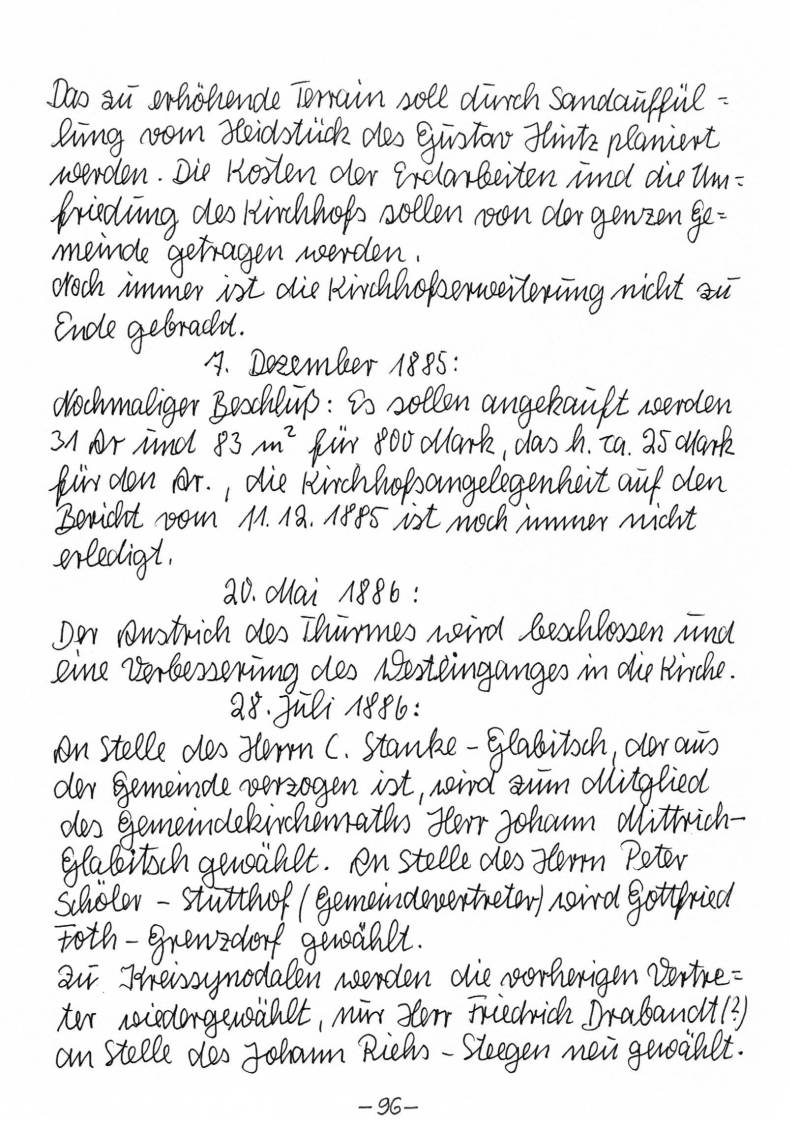 Das zu erhöhende Terrain soll durch Sandauffül=
lung vom Heidstück des Gustav Hintz planiert
werden. Die Kosten der Erdarbeiten und die Um=
friedung des Kirchhofs sollen von der genzen Ge=
meinde getragen werden.
Noch immer ist die Kirchhofserweiterung nicht zu
Ende gebracht.
7. Dezember 1885:
Nochmaliger Beschluß: Es sollen angekauft werden
31 Ar und 83 m² für 800 Mark, das h. ca. 25 Mark
für den Ar., die Kirchhofsangelegenheit auf den
Bericht vom 11.12.1885 ist noch immer nicht
erledigt.
20. Mai 1886:
Der Anstrich des Thurmes wird beschlossen und
eine Verbesserung des Westeinganges in die Kirche.
28. Juli 1886:
An Stelle des Herrn C. Stanke - Glabitsch, der aus
der Gemeinde verzogen ist, wird zum Mitglied
des Gemeindekirchenraths Herr Johann Mittrich-
Glabitsch gewählt. An Stelle des Herrn Peter
Schöler - Stutthof (Gemeindevertreter) wird Gottfried
Foth - Grenzdorf gewählt.
Zu Kreissynodalen werden die vorherigen Vertre=
ter wiedergewählt, nur Herr Friedrich Drabandt(?)
an Stelle des Johann Riehs - Steegen neu gewählt.
- 96 -